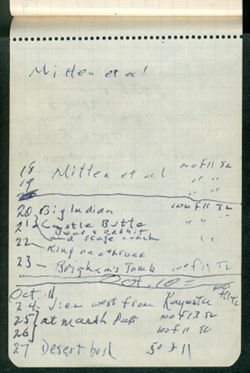 Mitten et al
18 Mitten et al 100 f 11 SL
19 " "
20 Big Indian 100 f 11 SL
21 Castle Butte " "
Bear & Rabbit
22 and stage coach " "
King on throne
23 Brigham's Tomb 100 f 11 SL
Oct. 10
Oct. 11
24 View west from Kayenta
25 at Marsh Pass 100 f 13 SL
26 100 f 11 SL
27 Desert boil 50 f 11